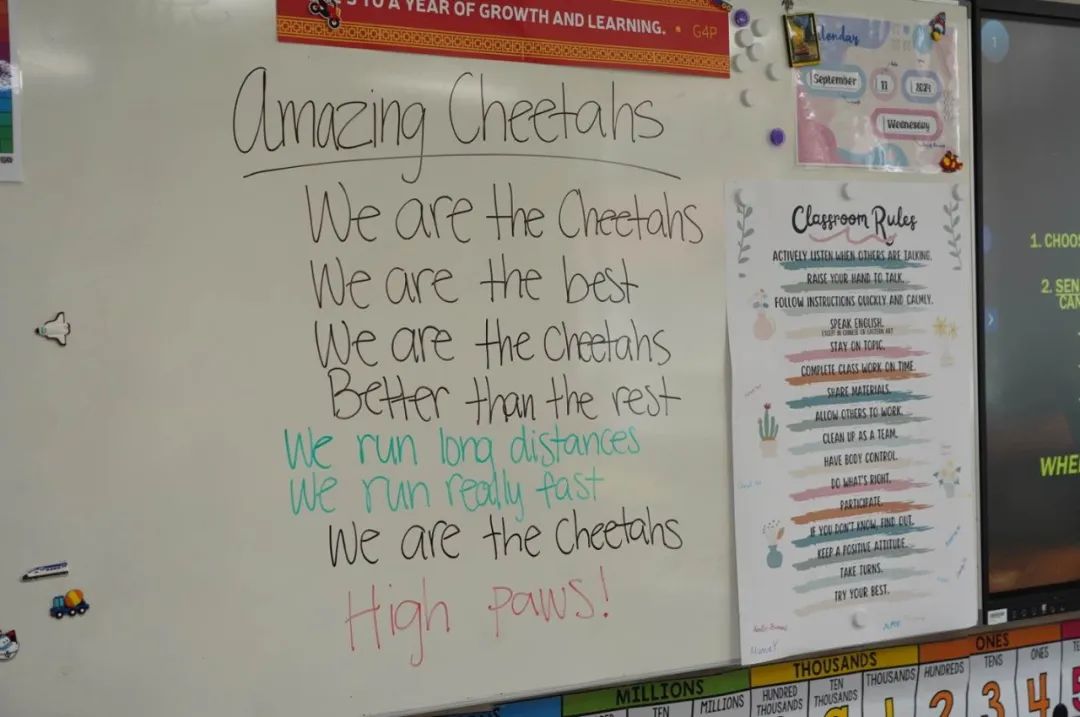 TO A YEAR OF GROWTH AND LEARNING. • G4P
Amazing Cheetahs
We are the Cheetahs
We are the best
We are the Cheetahs
Better than the rest
We run long distances
We run really fast
We are the Cheetahs
High paws!
Calendar
September 11 2024
Wednesday
Classroom Rules
ACTIVELY LISTEN WHEN OTHERS ARE TALKING.
RAISE YOUR HAND TO TALK.
FOLLOW INSTRUCTIONS QUICKLY AND CALMLY.
SPEAK ENGLISH.
EXCEPT IN CHINESE OR EASTERN ART
STAY ON TOPIC.
COMPLETE CLASS WORK ON TIME.
SHARE MATERIALS.
ALLOW OTHERS TO WORK.
CLEAN UP AS A TEAM.
HAVE BODY CONTROL.
DO WHAT'S RIGHT.
PARTICIPATE.
IF YOU DON'T KNOW, FIND OUT.
KEEP A POSITIVE ATTITUDE.
TAKE TURNS.
TRY YOUR BEST.
1. CHOOS
2. SEN
CAN
WHE
MILLIONS THOUSANDS ONES
TEN MILLIONS HUNDRED THOUSANDS TEN THOUSANDS THOUSANDS HUNDREDS TENS ONES
2 3 4